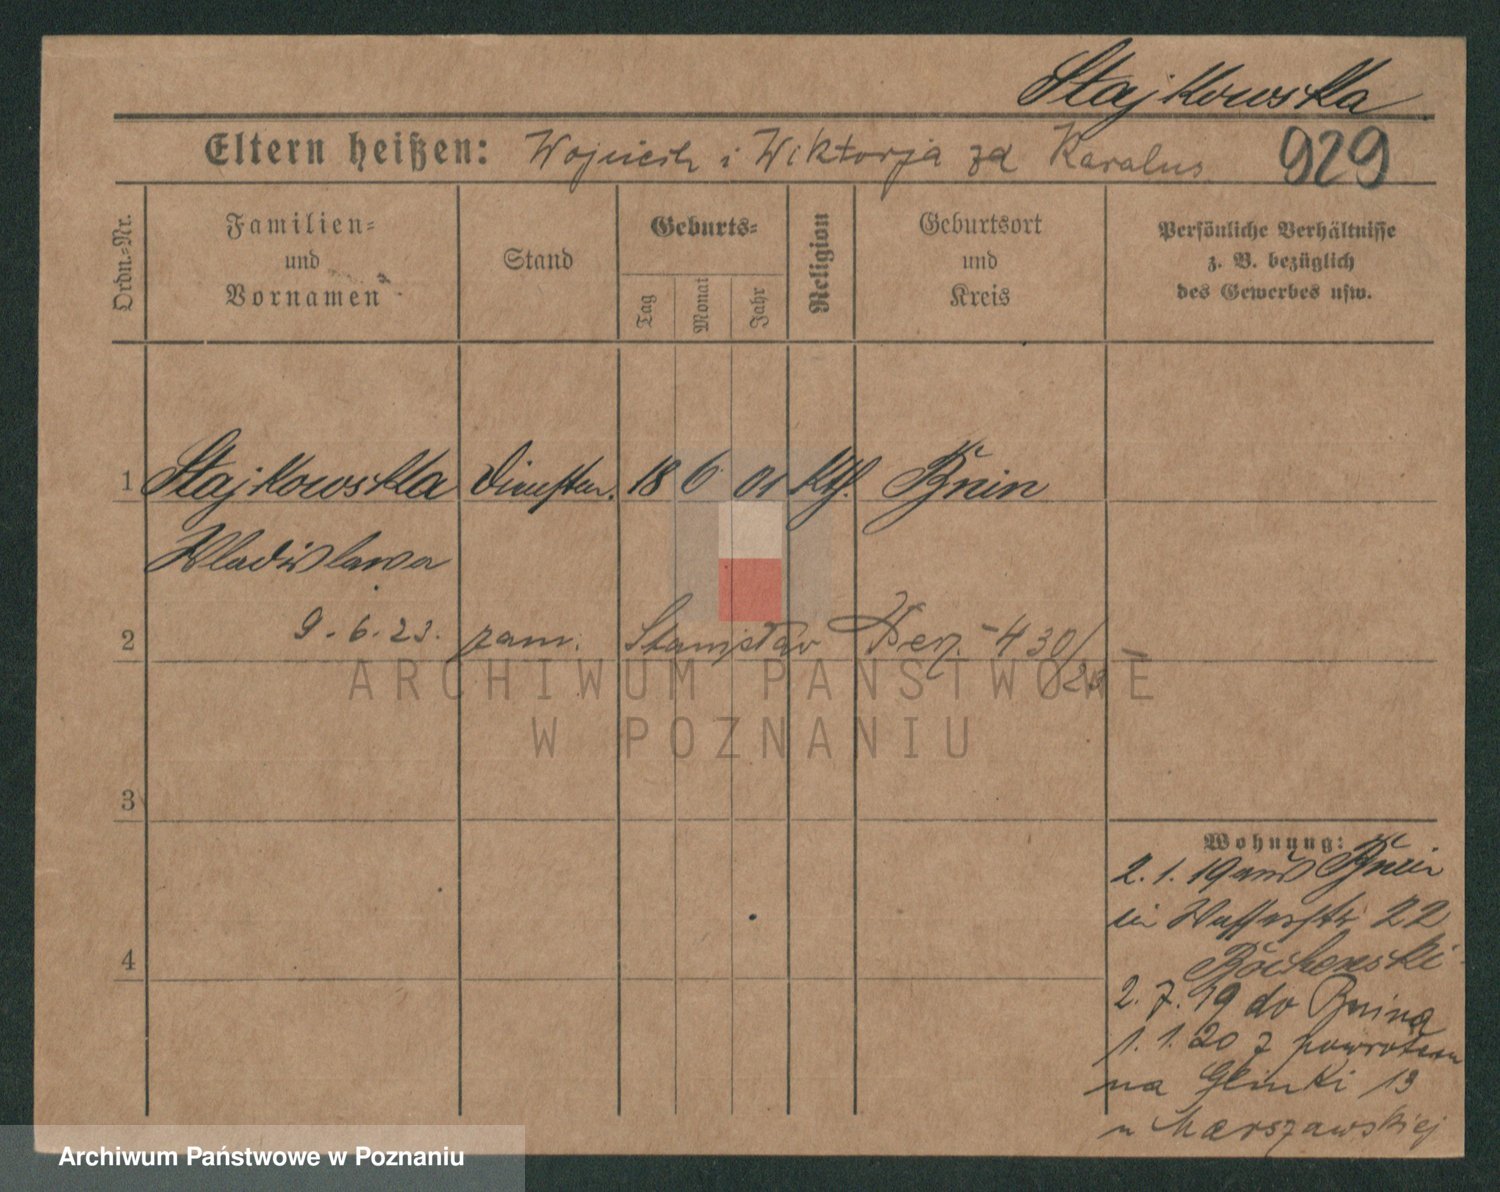 Stajkowska
Eltern heißen: Wojciech i Wiktorja zd Karalus 929
Ordn.-Nr.
Familien-
und
Vornamen
Stand
Geburts-
Tag
Monat
Jahr
Religion
Geburtsort
und
Kreis
Persönliche Verhältnisse
z. B. bezüglich
des Gewerbes usw.
1 Stajkowska Dienstm. 18 6 01 Kth. Bnin
Wladislawa
2 9.6.23. zam. Stanisław 430/23
3
4
Wohnung:
2.1.19 aus Bnin
in Wasserstr 22
2.7.19 do Bnina
1.1.20 z powrotem
na Glinki 13
u Marszawskiej
ARCHIWUM PAŃSTWOWE
W POZNANIU
Archiwum Państwowe w Poznaniu